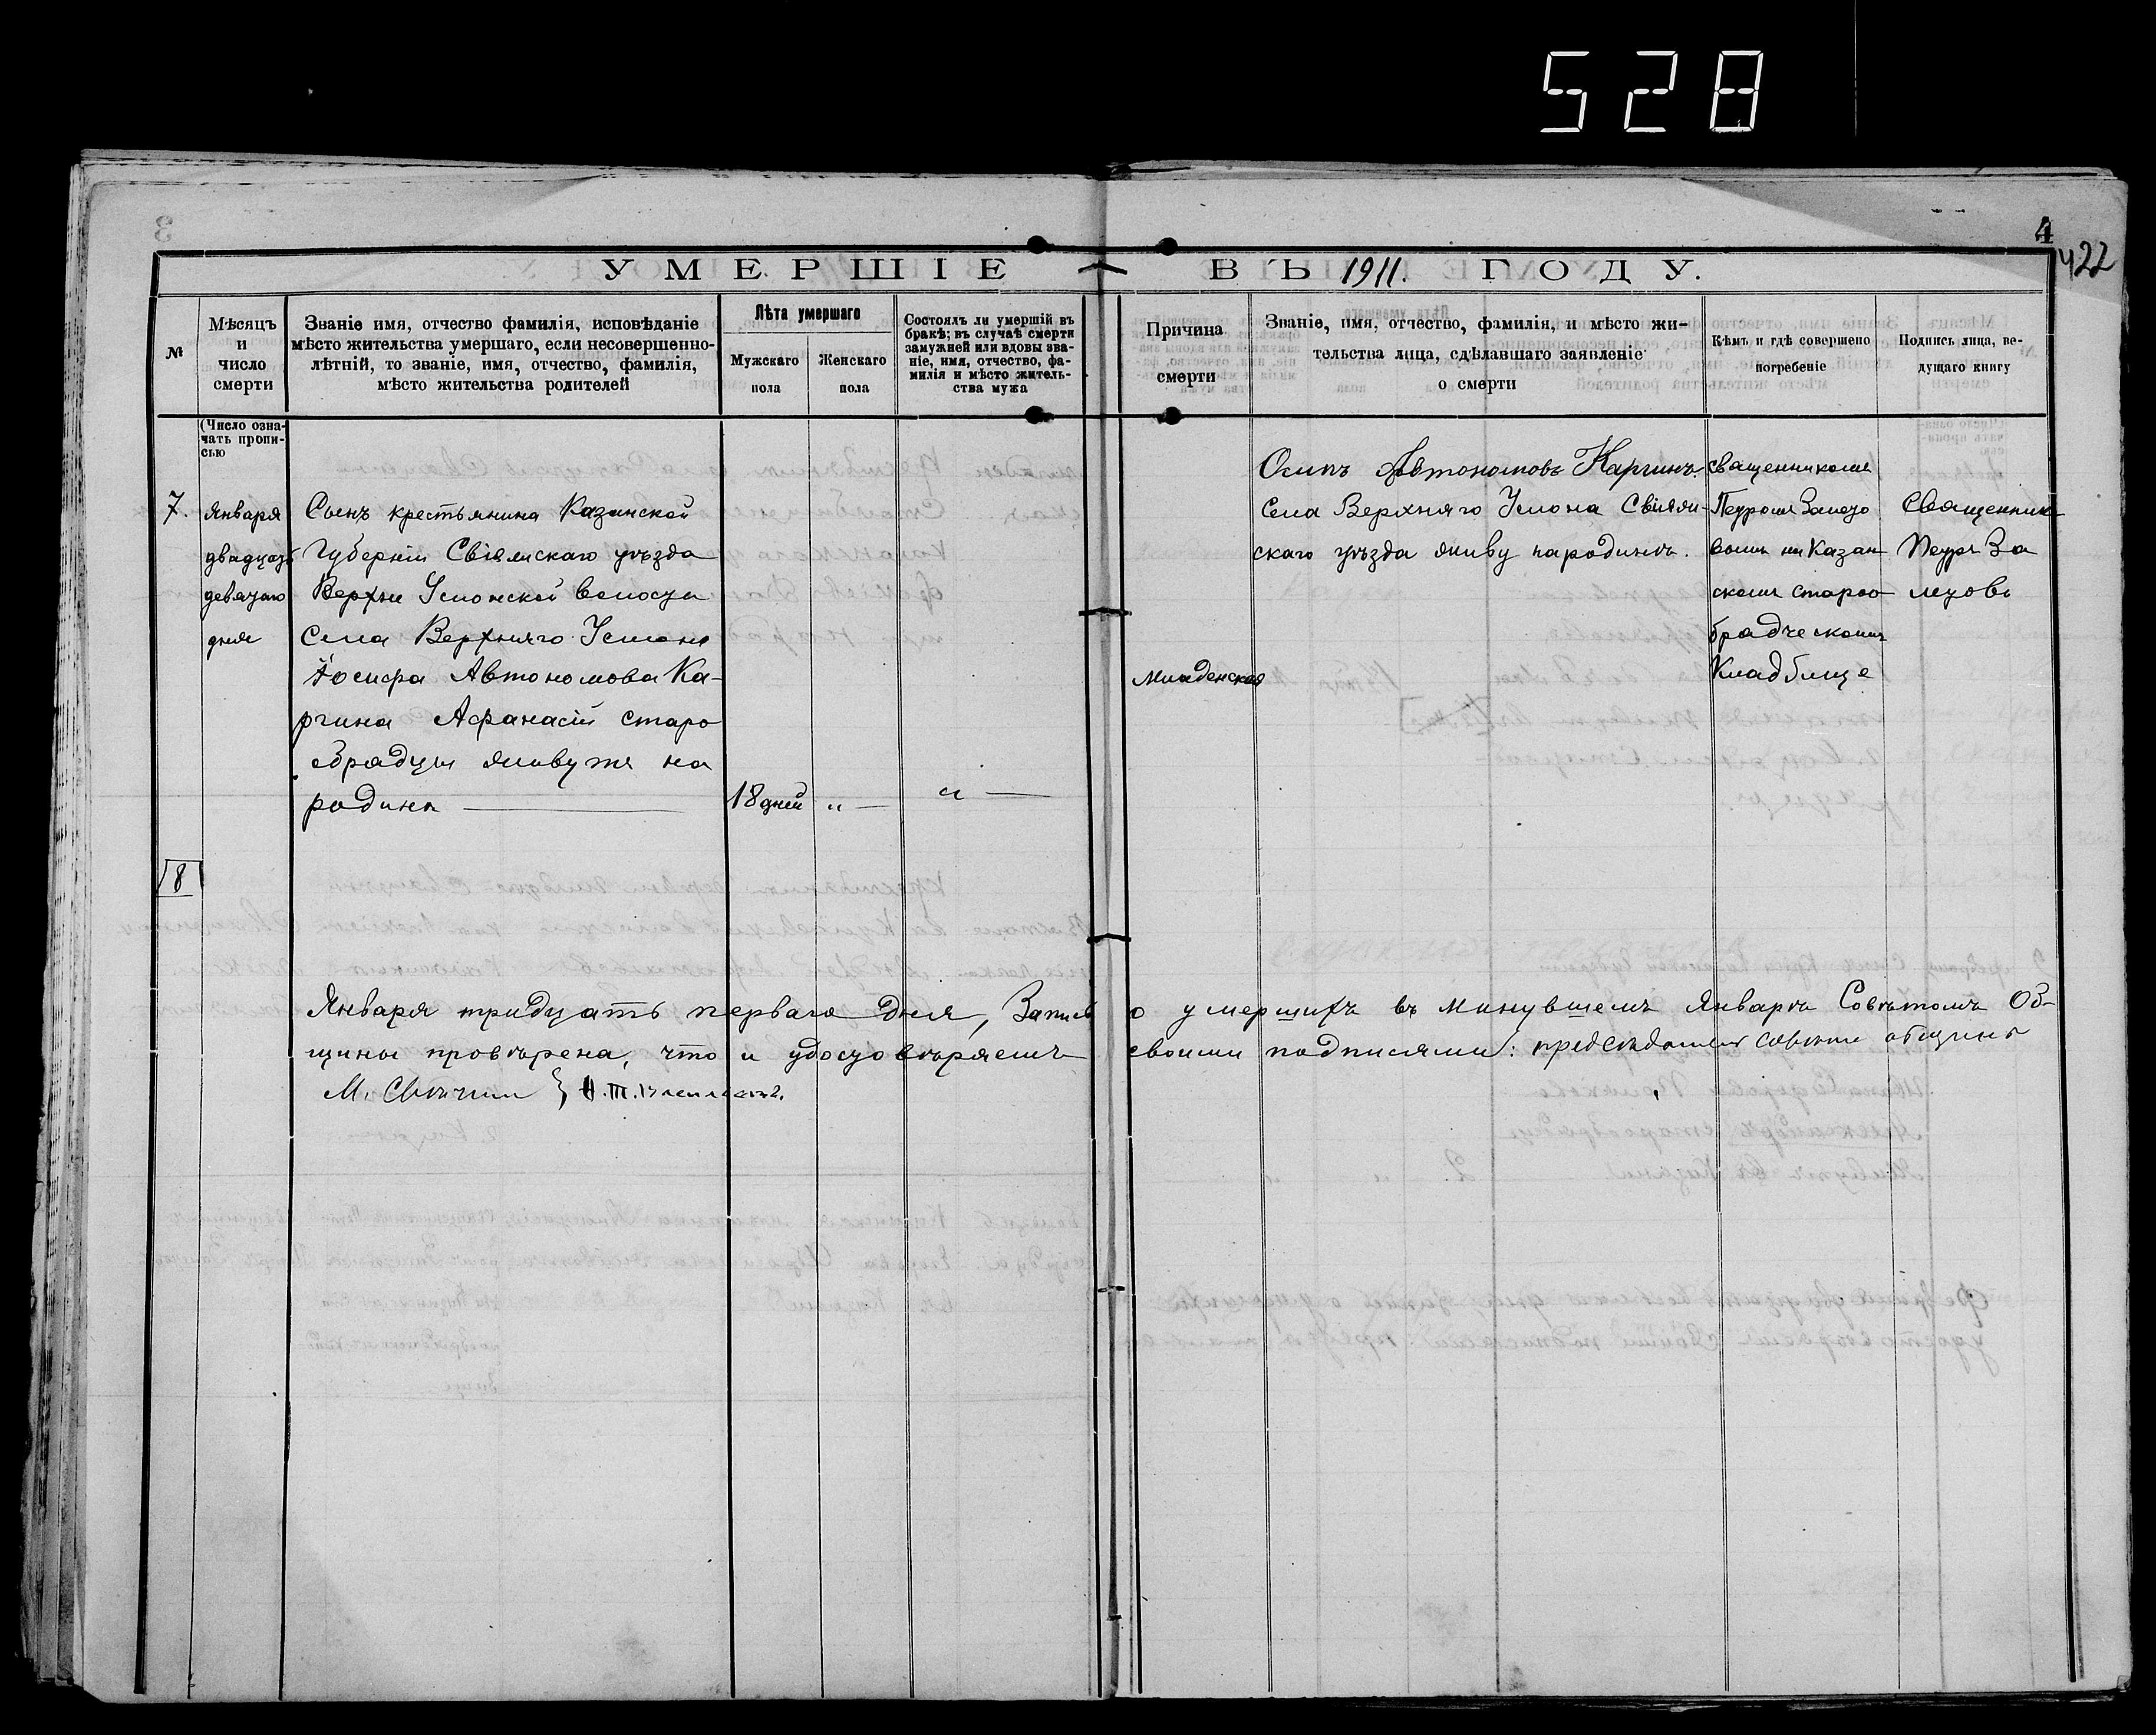 528
4
422
УМЕРШІЕ ВЪ 1911. ГОДУ.
№
Мѣсяцъ
и
число
смерти
Званіе имя, отчество фамилія, исповѣданіе
мѣсто жительства умершаго, если несовершенно-
лѣтній, то званіе, имя, отчество, фамилія,
мѣсто жительства родителей
Лѣта умершаго
Мужскаго
пола
Женскаго
пола
Состоялъ ли умершій въ
бракѣ; въ случаѣ смерти
замужней или вдовы зва-
ніе, имя, отчество, фа-
милія и мѣсто житель-
ства мужа
Причина
смерти
Званіе, имя, отчество, фамилія, и мѣсто жи-
тельства лица, сдѣлавшаго заявленіе
о смерти
Кѣмъ и гдѣ совершено
погребеніе
Подпись лица, ве-
дущаго книгу
(Число озна-
чать пропи-
сью
7.
Января
двадцать
девятаго
дня
Сынъ крестьянина Казанской
Губерніи Свіяжскаго уѣзда
Верхне Услонской волости
Села Верхняго Услона
Іосифа Автономова Ка-
ргина Афанасій старо
обрядцы живутъ на
родинѣ
18 дней
"
"
Младенская
Осипъ Автономовъ Каргинъ.
Села Верхняго Услона Свіяж-
скаго уѣзда живу народинѣ.
священникомъ
Петромъ Залето
вымъ на Казан
скомъ старо
брадческомъ
Кладбище
Священникъ
Петръ За
летовъ
8
Января тридцать перваго дня, Запись о умершихъ въ минувшемъ Январѣ Совѣтомъ Об-
щины провѣрена, что и удостовѣряемъ своими подписями: председатель совета общины
М. Свечин